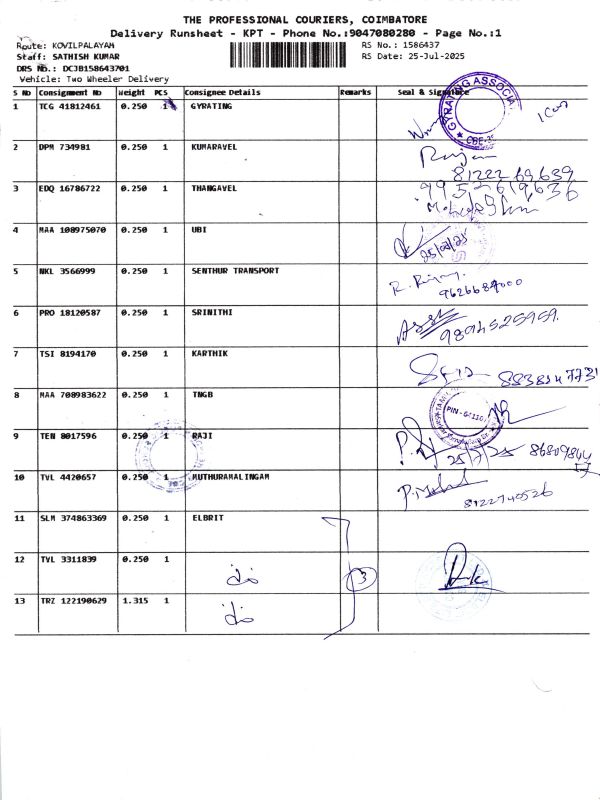 THE PROFESSIONAL COURIERS, COIMBATORE
Delivery Runsheet - KPT - Phone No.:9047080280 - Page No.:1
Route: KOVILPALAYAM
RS No.: 1586437
Staff: SATHISH KUMAR
RS Date: 25-Jul-2025
DRS No.: DCJB158643701
Vehicle: Two Wheeler Delivery
S No Consignment No Weight PCS Consignee Details Remarks Seal & Signature
1 TCG 41812461 0.250 1 GYRATING
GYRATING ASSOCI
CBE-3
2 DPM 734981 0.250 1 KUMARAVEL
8122269639
3 EDQ 16786722 0.250 1 THANGAVEL
9952619636
4 MAA 108975070 0.250 1 UBI
5 NKL 3566999 0.250 1 SENTHUR TRANSPORT
6 PRO 18120587 0.250 1 SRINITHI
9894525959
7 TSI 8194170 0.250 1 KARTHIK
8 MAA 708983622 0.250 1 TNGB
9 TEN 8017596 0.250 1 RAJI
25/7/25
10 TVL 4420657 0.250 1 MUTHURAMALINGAM
8122740526
11 SLM 374863369 0.250 1 ELBRIT
12 TVL 3311839 0.250 1
do
3
13 TRZ 122190629 1.315 1
do